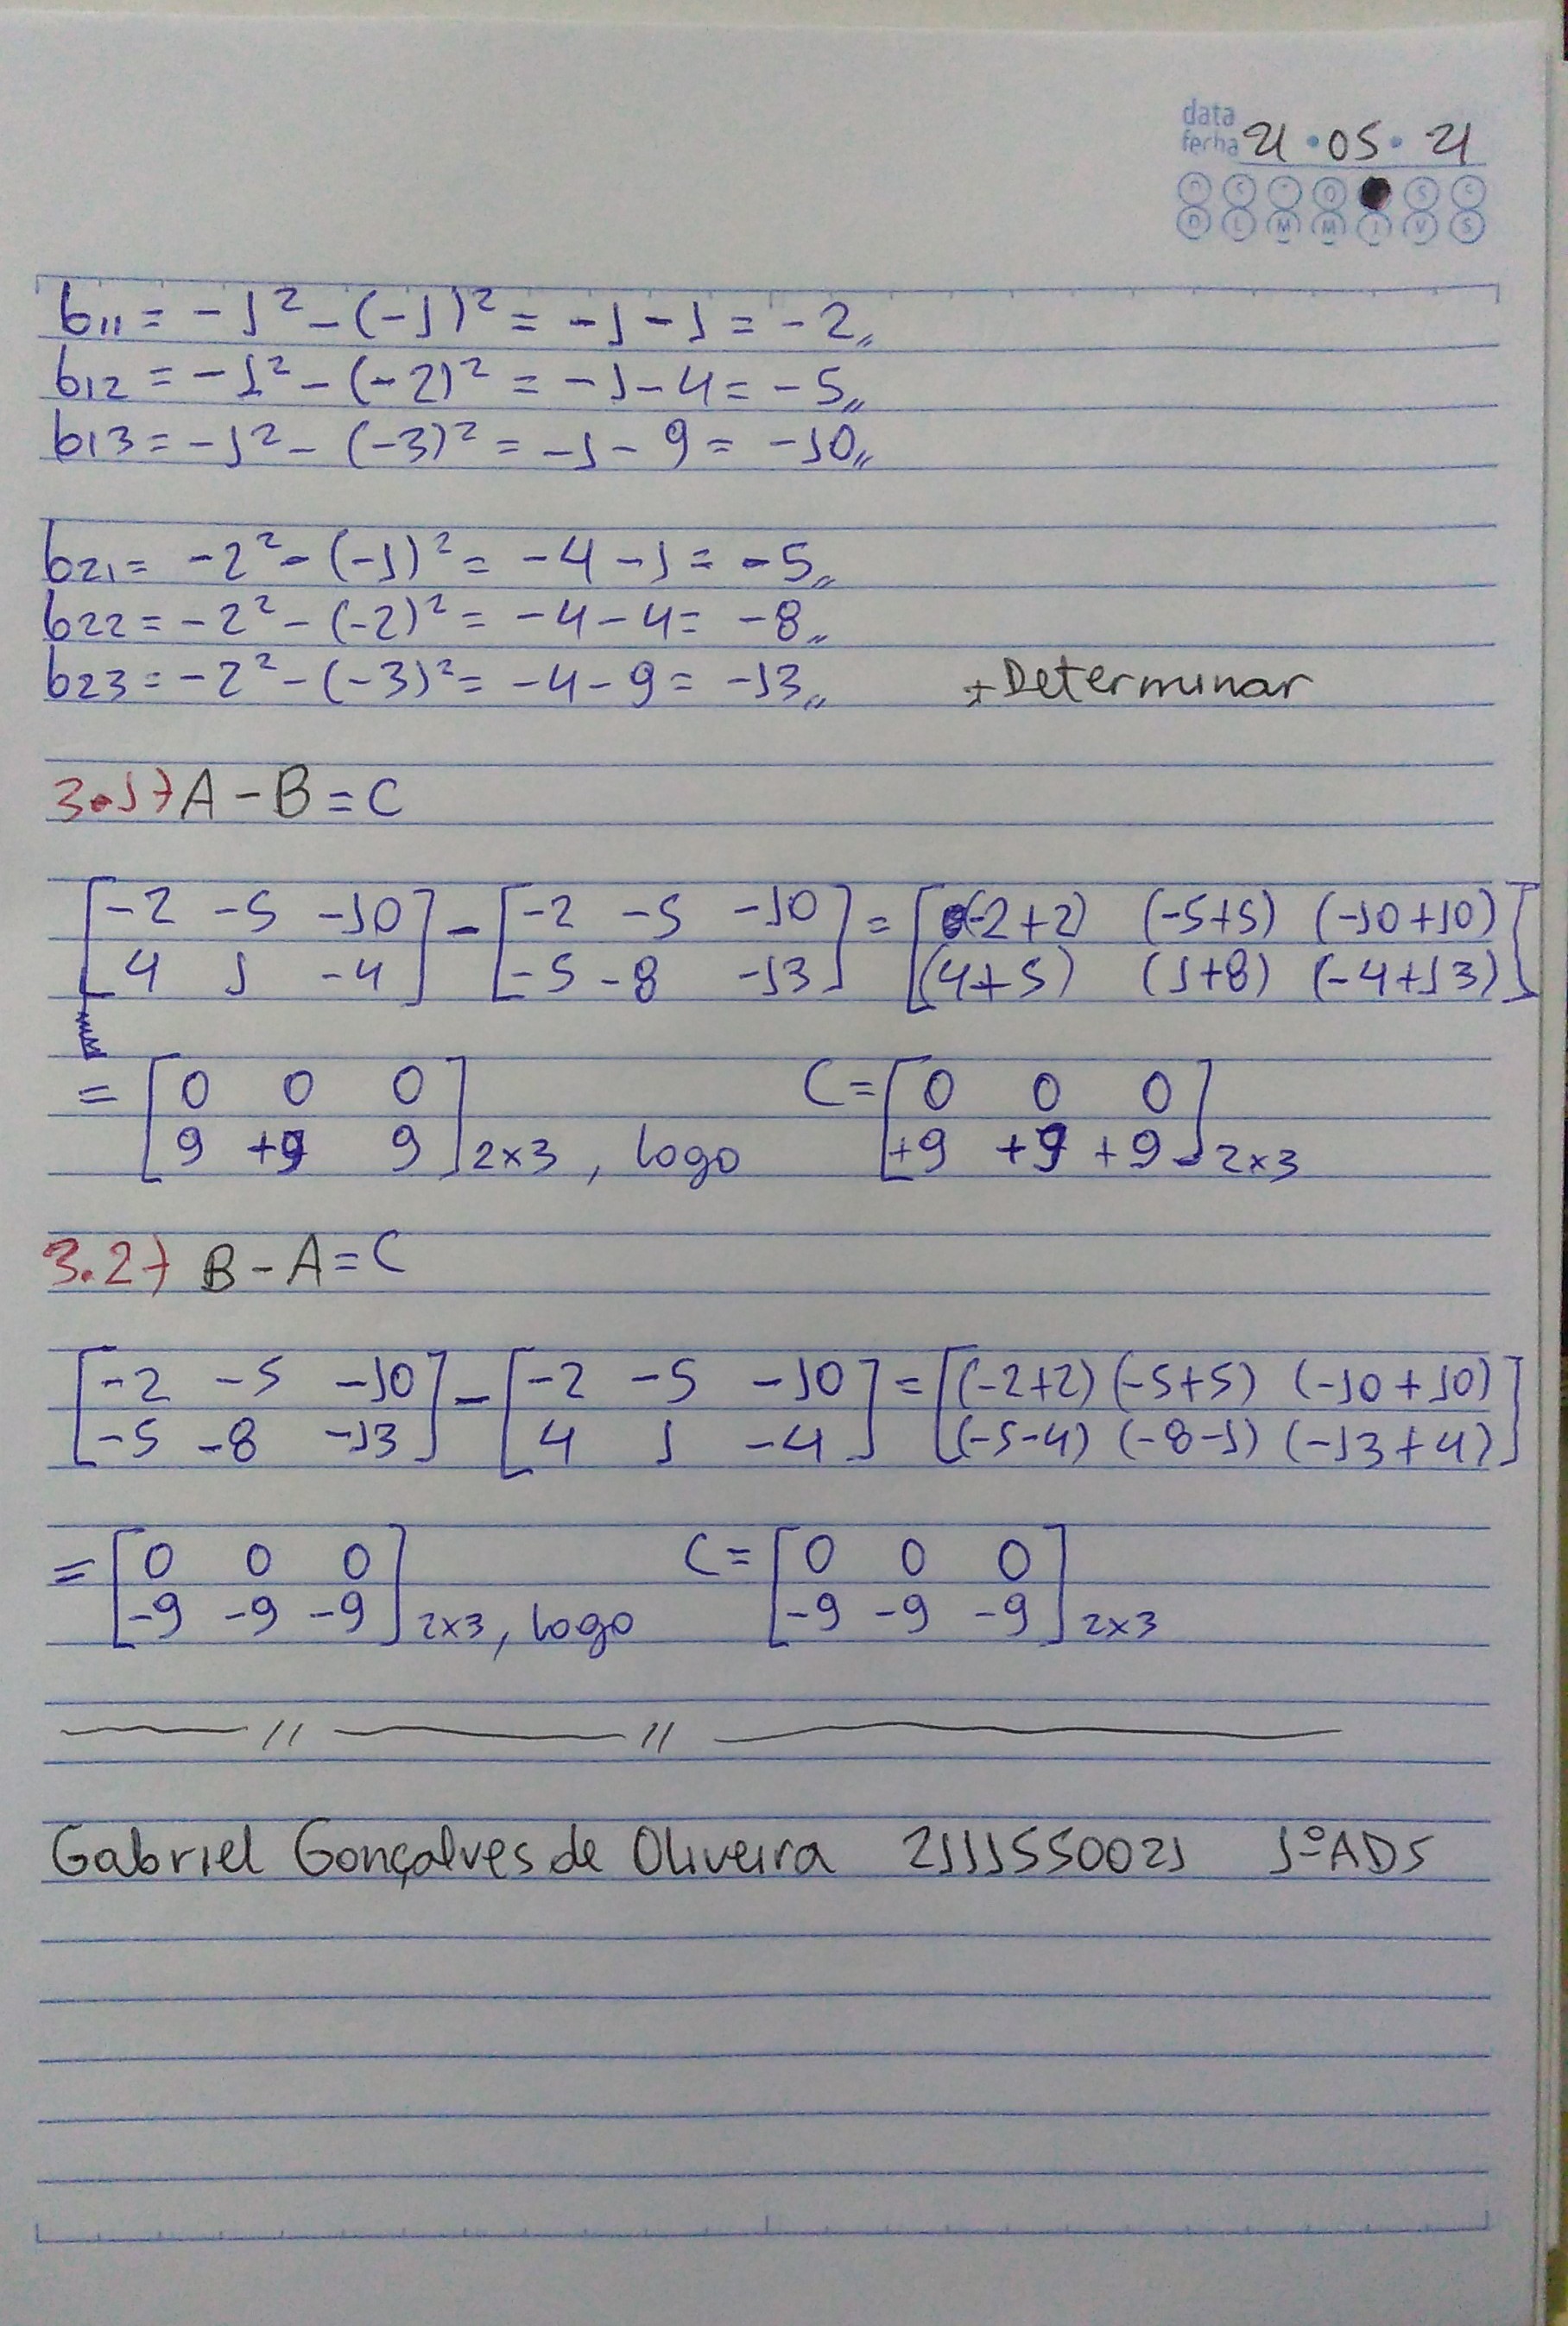 data
fecha 21 • 05 • 21
D S T Q S S
D L M M J V S
b11 = -1² - (-1)² = -1 - 1 = -2,,
b12 = -1² - (-2)² = -1 - 4 = -5,,
b13 = -1² - (-3)² = -1 - 9 = -10,,
b21 = -2² - (-1)² = -4 - 1 = -5,,
b22 = -2² - (-2)² = -4 - 4 = -8,,
b23 = -2² - (-3)² = -4 - 9 = -13,, + Determinar
3.1) A - B = C
[-2 -5 -10] - [-2 -5 -10] = [(-2+2) (-5+5) (-10+10)]
[4 1 -4] [-5 -8 -13] [(4+5) (1+8) (-4+13)]
= [0 0 0] C = [0 0 0]
[9 +9 9] 2x3, logo [+9 +9 +9] 2x3
3.2) B - A = C
[-2 -5 -10] - [-2 -5 -10] = [(-2+2) (-5+5) (-10+10)]
[-5 -8 -13] [4 1 -4] [(-5-4) (-8-1) (-13+4)]
= [0 0 0] C = [0 0 0]
[-9 -9 -9] 2x3, logo [-9 -9 -9] 2x3
Gabriel Gonçalves de Oliveira 2111550021 1º ADS